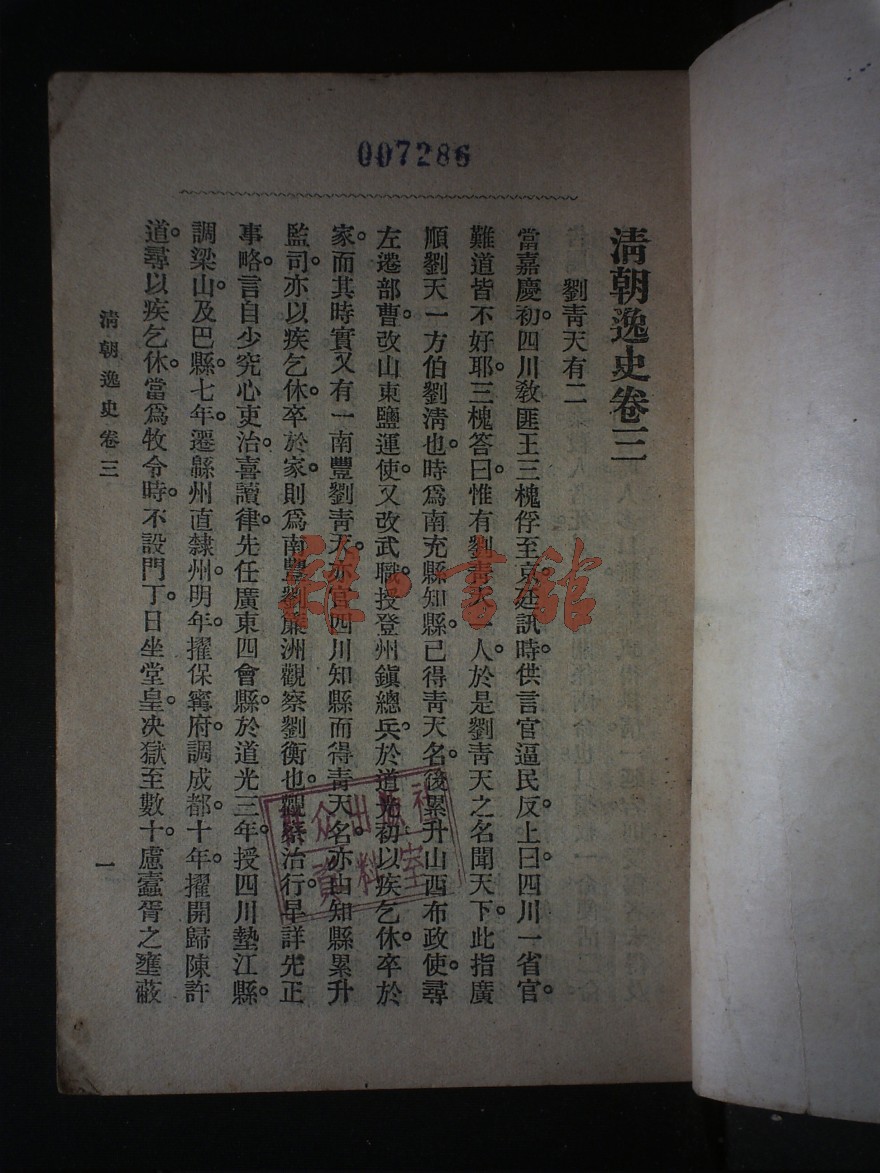 007286
清朝逸史卷三
劉青天有二
當嘉慶初。四川教匪王三槐俘至京。廷訊時。供言官逼民反。上曰。四川一省官。
難道皆不好耶。三槐答曰。惟有劉青天一人。於是劉青天之名聞天下。此指廣
順劉天一方伯劉淸也。時爲南充縣知縣。已得青天名。後累升山西布政使。尋
左遷部曹。改山東鹽運使。又改武職。授登州鎮總兵。於道光初以疾乞休。卒於
家。而其時實又有一南豐劉青天。亦官四川知縣而得青天名。亦由知縣累升
監司。亦以疾乞休。卒於家。則爲南豐劉簾洲觀察劉衡也。觀察治行。早詳先正
事略。言自少究心吏治。喜讀律。先任廣東四會縣。於道光三年。授四川墊江縣。
調梁山。及巴縣。七年。遷緜州直隸州。明年。擢保寧府。調成都。十年。擢開歸陳許
道。尋以疾乞休。當爲牧令時。不設門丁。日坐堂皇。决獄至數十。慮蠹胥之壅蔽
清朝逸史卷三
一
羣众出版社
資料室